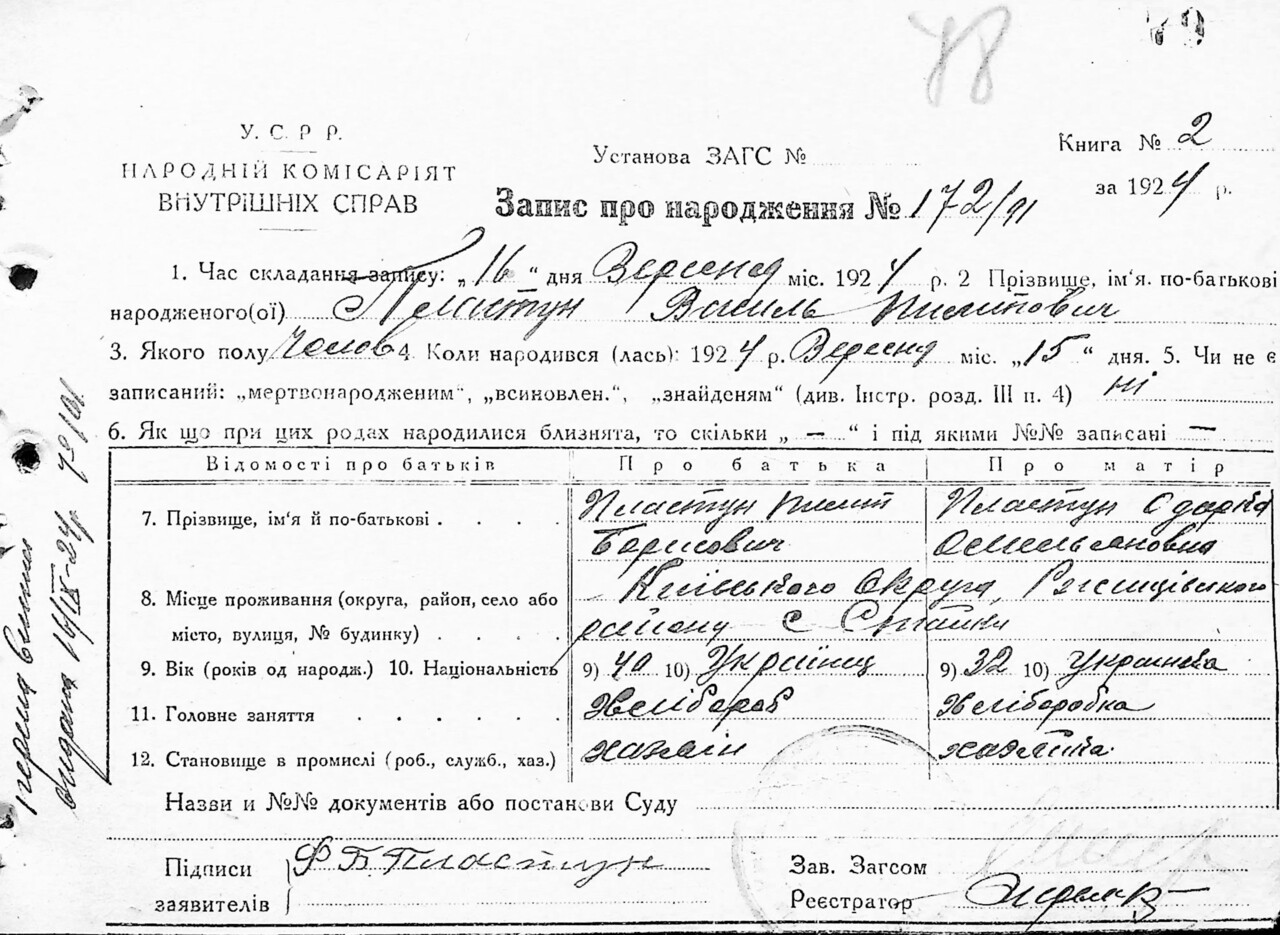 78
79
У. С. Р Р.
НАРОДНІЙ КОМІСАРІЯТ
ВНУТРІШНІХ СПРАВ
Установа ЗАГС №
Книга № 2
за 1924 р.
Запис про народження № 172/91
1. Час складання запису: „16" дня Вересня міс. 1924 р. 2 Прізвище, ім'я. по-батькові
народженого(ої) Пластун Василь Пилипович
3. Якого полу Чолов 4. Коли народився (лась): 1924 р. Вересня міс. „15" дня. 5. Чи не є
записаний: „мертвонародженим", „всиновлен.", „знайденям" (див. Інстр. розд. III п. 4) ні
6. Як що при цих родах народилися близнята, то скільки „ — " і під якими №№ записані —
Відомості про батьків Про батька Про матір
7. Прізвище, ім'я й по-батькові . . . . Пластун Пилип Пластун Одарка
Борисович Омельяновна
8. Місце проживання (округа, район, село або Київського Округа, Ржищівського
місто, вулиця, № будинку) . . . . району с Стайки
9. Вік (років од народж.) 10. Національність 9) 40 10) Українець 9) 32 10) Українка
11. Головне заняття . . . . . . Хлібороб Хліборобка
12. Становище в промислі (роб., служб., хаз.) хазяїн хазяйка
Назви и №№ документів або постанови Суду
Підписи Ф Б Пластун
заявителів
Зав. Загсом
Реєстратор
видана 16/IX-24